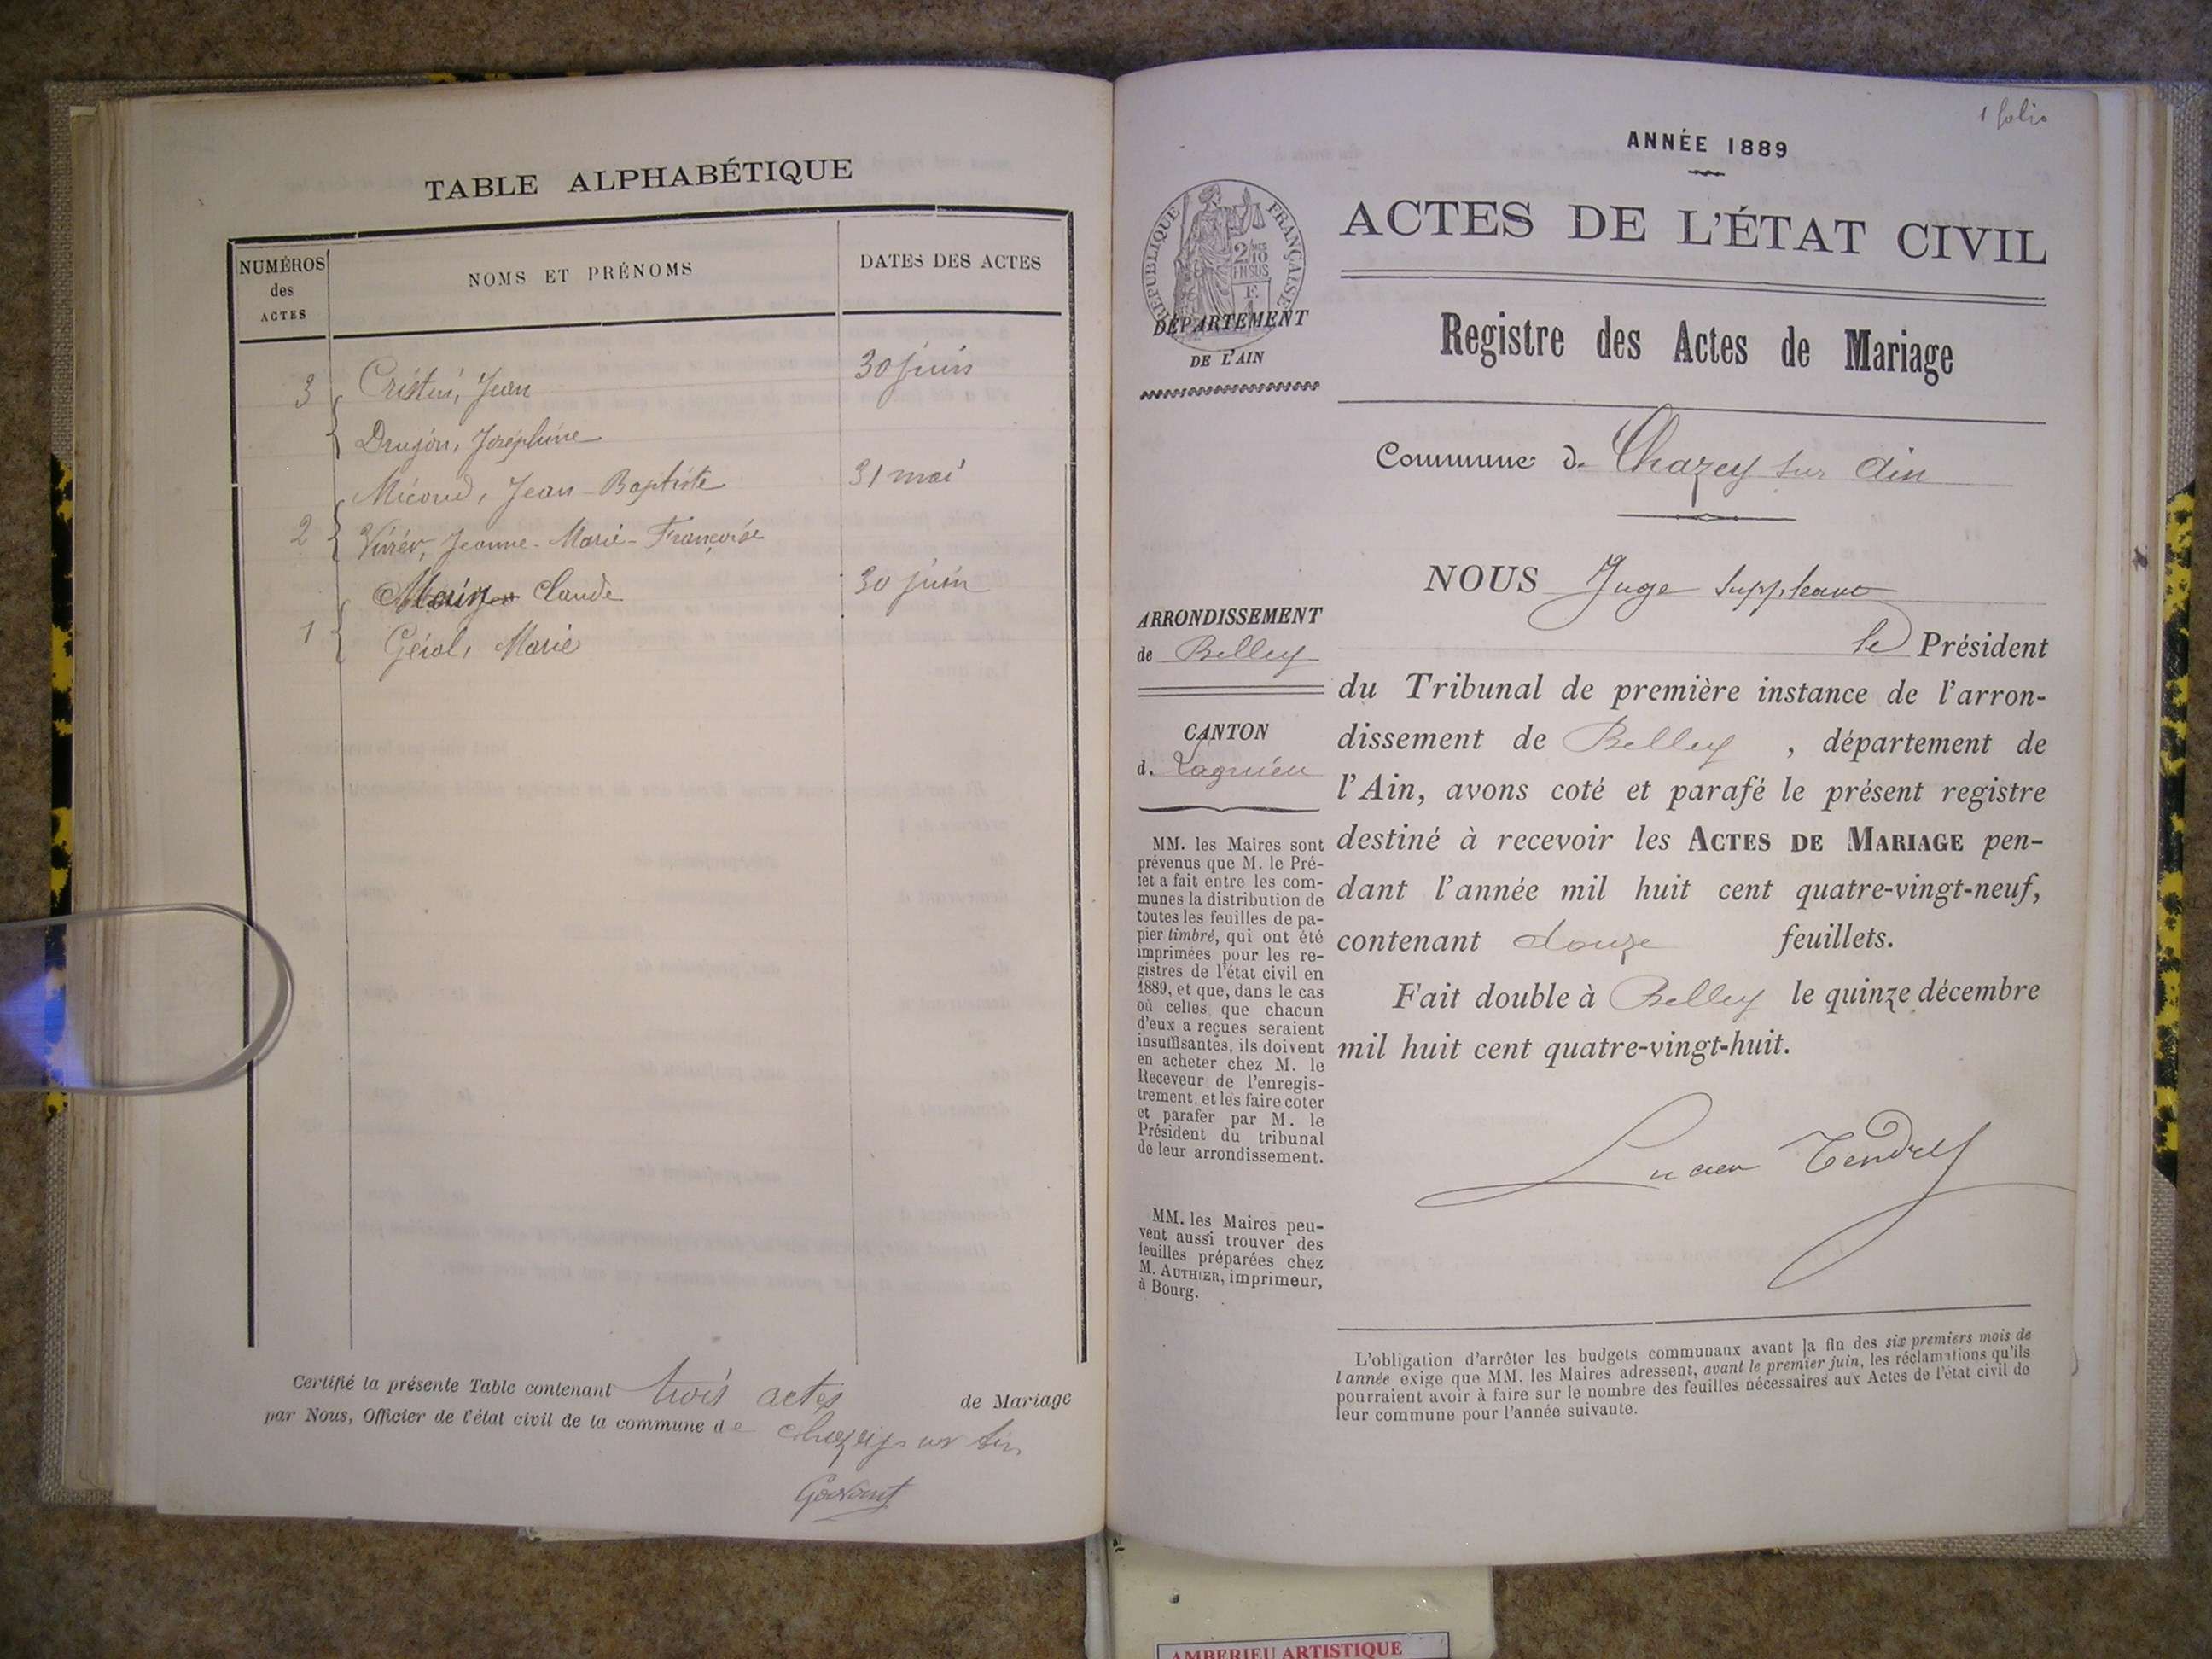 TABLE ALPHABÉTIQUE
NUMÉROS des ACTES
NOMS ET PRÉNOMS
DATES DES ACTES
3 Cristin, Jean 30 juin
Drujon, Joséphine
Micoud, Jean-Baptiste 31 mai
2 Jeanne-Marie-Françoise
Claude 30 juin
1 Marie
Certifié la présente Table contenant trois actes de Mariage
par Nous, Officier de l'état civil de la commune de Chazey sur Ain
1 folio
ANNÉE 1889
ACTES DE L'ÉTAT CIVIL
RÉPUBLIQUE FRANÇAISE
2/10 EN SUS
DÉPARTEMENT
DE L'AIN
Registre des Actes de Mariage
Commune de Chazey sur Ain
NOUS Juge Suppléant
le Président
du Tribunal de première instance de l'arron-
dissement de Belley, département de
l'Ain, avons coté et parafé le présent registre
destiné à recevoir les ACTES DE MARIAGE pen-
dant l'année mil huit cent quatre-vingt-neuf,
contenant douze feuillets.
Fait double à Belley le quinze décembre
mil huit cent quatre-vingt-huit.
Lucien Tendret
ARRONDISSEMENT
de Belley
CANTON
d. Lagnieu
MM. les Maires sont
prévenus que M. le Pré-
fet a fait entre les com-
munes la distribution de
toutes les feuilles de pa-
pier timbré, qui ont été
imprimées pour les re-
gistres de l'état civil en
1889, et que, dans le cas
où celles que chacun
d'eux a reçues seraient
insuffisantes, ils doivent
en acheter chez M. le
Receveur de l'enregis-
trement, et les faire coter
et parafer par M. le
Président du tribunal
de leur arrondissement.
MM. les Maires peu-
vent aussi trouver des
feuilles préparées chez
M. AUTHIER, imprimeur,
à Bourg.
L'obligation d'arrêter les budgets communaux avant la fin des six premiers mois de
l'année exige que MM. les Maires adressent, avant le premier juin, les réclamations qu'ils
pourraient avoir à faire sur le nombre des feuilles nécessaires aux Actes de l'état civil de
leur commune pour l'année suivante.
AMBERIEU ARTISTIQUE